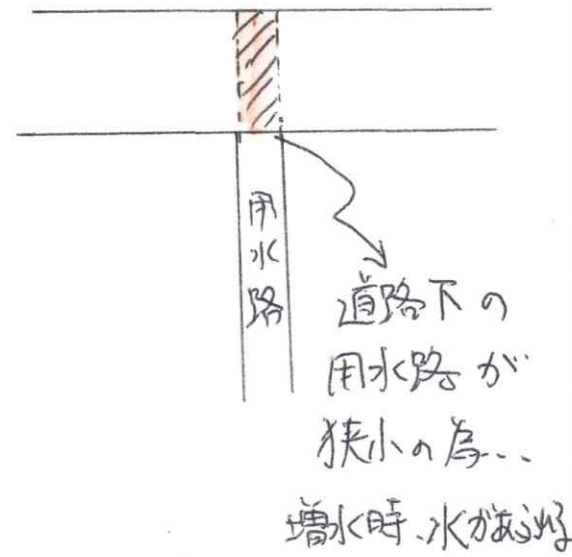 用水路
道路下の
用水路が
狭小の為...
増水時、水があふれる